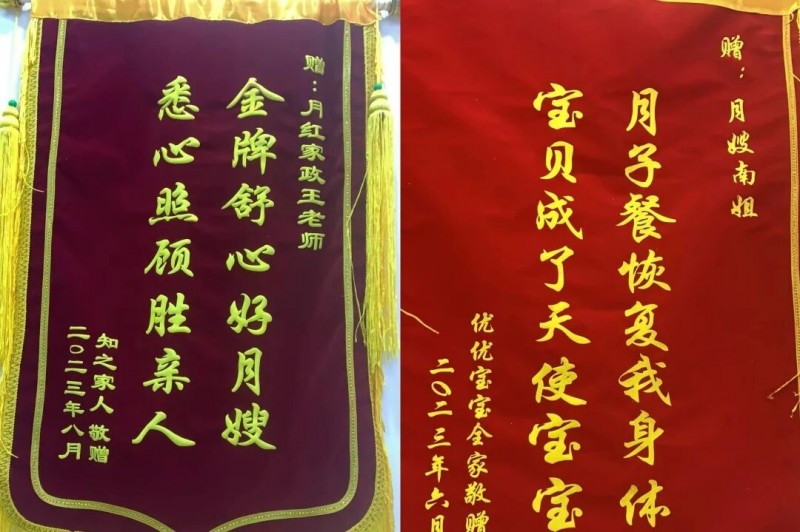 赠：月红家政王老师
金牌舒心好月嫂
悉心照顾胜亲人
知之家人 敬赠
二〇二三年八月
赠：月嫂南姐
月子餐恢复我身体
宝贝成了天使宝宝
优优宝宝全家敬赠
二〇二三年六月